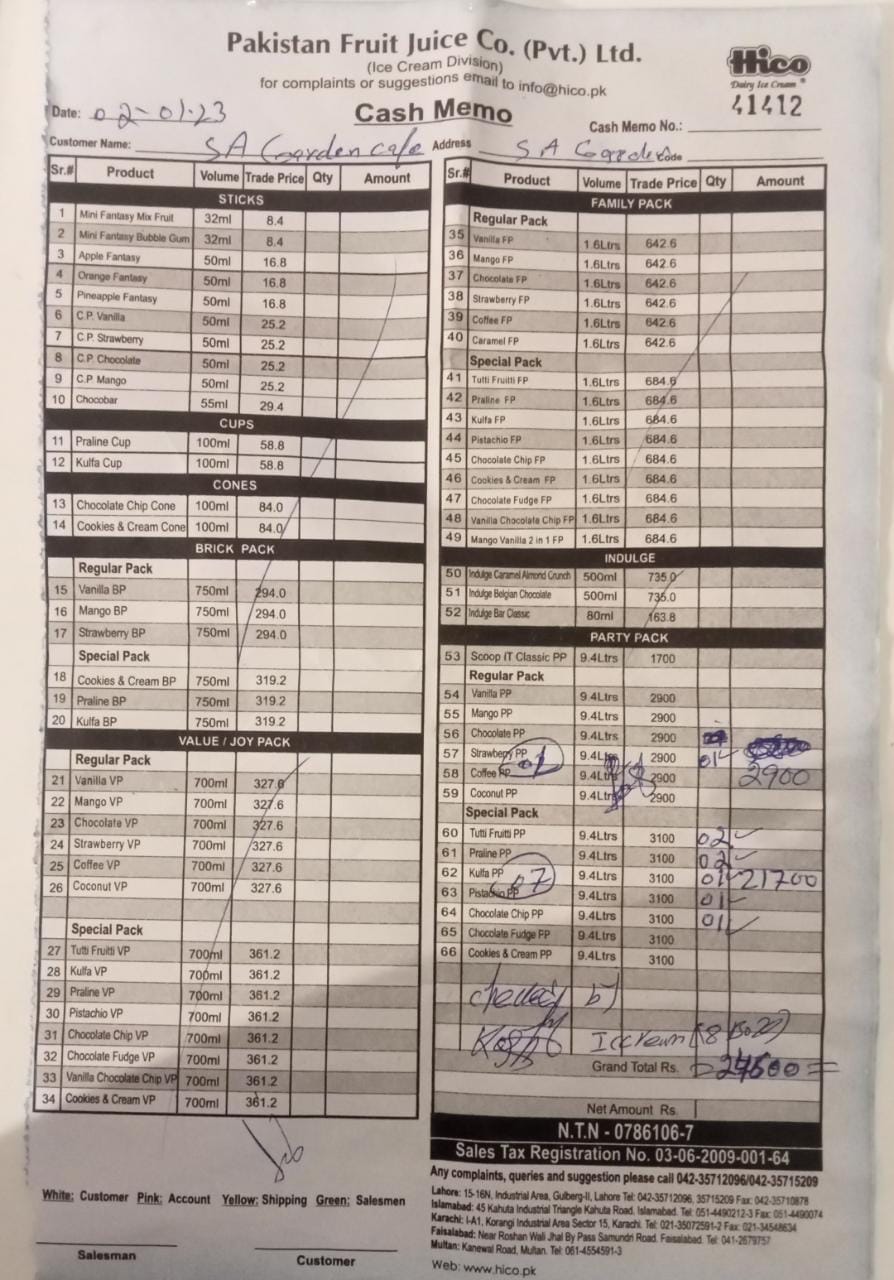 Pakistan Fruit Juice Co. (Pvt.) Ltd.
(Ice Cream Division)
for complaints or suggestions email to info@hico.pk
Hico
Dairy Ice Cream
41412
Date: 02-01-23
Cash Memo
Cash Memo No.:
Customer Name: SA Garden Cafe Address SA Garden Code
Sr.# Product Volume Trade Price Qty Amount
STICKS
1 Mini Fantasy Mix Fruit 32ml 8.4
2 Mini Fantasy Bubble Gum 32ml 8.4
3 Apple Fantasy 50ml 16.8
4 Orange Fantasy 50ml 16.8
5 Pineapple Fantasy 50ml 16.8
6 C.P. Vanilla 50ml 25.2
7 C.P. Strawberry 50ml 25.2
8 C.P. Chocolate 50ml 25.2
9 C.P. Mango 50ml 25.2
10 Chocobar 55ml 29.4
CUPS
11 Praline Cup 100ml 58.8
12 Kulfa Cup 100ml 58.8
CONES
13 Chocolate Chip Cone 100ml 84.0
14 Cookies & Cream Cone 100ml 84.0
BRICK PACK
Regular Pack
15 Vanilla BP 750ml 294.0
16 Mango BP 750ml 294.0
17 Strawberry BP 750ml 294.0
Special Pack
18 Cookies & Cream BP 750ml 319.2
19 Praline BP 750ml 319.2
20 Kulfa BP 750ml 319.2
VALUE / JOY PACK
Regular Pack
21 Vanilla VP 700ml 327.6
22 Mango VP 700ml 327.6
23 Chocolate VP 700ml 327.6
24 Strawberry VP 700ml 327.6
25 Coffee VP 700ml 327.6
26 Coconut VP 700ml 327.6
Special Pack
27 Tutti Fruitti VP 700ml 361.2
28 Kulfa VP 700ml 361.2
29 Praline VP 700ml 361.2
30 Pistachio VP 700ml 361.2
31 Chocolate Chip VP 700ml 361.2
32 Chocolate Fudge VP 700ml 361.2
33 Vanilla Chocolate Chip VP 700ml 361.2
34 Cookies & Cream VP 700ml 361.2
White: Customer Pink: Account Yellow: Shipping Green: Salesmen
Salesman Customer
Sr.# Product Volume Trade Price Qty Amount
FAMILY PACK
Regular Pack
35 Vanilla FP 1.6Ltrs 642.6
36 Mango FP 1.6Ltrs 642.6
37 Chocolate FP 1.6Ltrs 642.6
38 Strawberry FP 1.6Ltrs 642.6
39 Coffee FP 1.6Ltrs 642.6
40 Caramel FP 1.6Ltrs 642.6
Special Pack
41 Tutti Fruitti FP 1.6Ltrs 684.6
42 Praline FP 1.6Ltrs 684.6
43 Kulfa FP 1.6Ltrs 684.6
44 Pistachio FP 1.6Ltrs 684.6
45 Chocolate Chip FP 1.6Ltrs 684.6
46 Cookies & Cream FP 1.6Ltrs 684.6
47 Chocolate Fudge FP 1.6Ltrs 684.6
48 Vanilla Chocolate Chip FP 1.6Ltrs 684.6
49 Mango Vanilla 2 in 1 FP 1.6Ltrs 684.6
INDULGE
50 Indulge Caramel Almond Crunch 500ml 735.0
51 Indulge Belgian Chocolate 500ml 735.0
52 Indulge Bar Classic 80ml 163.8
PARTY PACK
53 Scoop IT Classic PP 9.4Ltrs 1700
Regular Pack
54 Vanilla PP 9.4Ltrs 2900
55 Mango PP 9.4Ltrs 2900
56 Chocolate PP 9.4Ltrs 2900
57 Strawberry PP 01 9.4Ltrs 2900 01
58 Coffee PP 9.4Ltrs 2900 2900
59 Coconut PP 9.4Ltrs 2900
Special Pack
60 Tutti Fruitti PP 9.4Ltrs 3100 02
61 Praline PP 9.4Ltrs 3100 02
62 Kulfa PP 07 9.4Ltrs 3100 01 21700
63 Pistachio PP 9.4Ltrs 3100 01
64 Chocolate Chip PP 9.4Ltrs 3100 01
65 Chocolate Fudge PP 9.4Ltrs 3100
66 Cookies & Cream PP 9.4Ltrs 3100
by
Grand Total Rs. 24600=
Net Amount Rs.
N.T.N - 0786106-7
Sales Tax Registration No. 03-06-2009-001-64
Any complaints, queries and suggestion please call 042-35712096/042-35715209
Lahore: 15-16N, Industrial Area, Gulberg-II, Lahore Tel: 042-35712096, 35715209 Fax: 042-35710878
Islamabad: 45 Kahuta Industrial Triangle Kahuta Road, Islamabad. Tel: 051-4490212-3 Fax: 051-4490074
Karachi: I-A1, Korangi Industrial Area Sector 15, Karachi. Tel: 021-35072591-2 Fax: 021-34548634
Faisalabad: Near Roshan Wali Jhal By Pass Samundri Road, Faisalabad. Tel: 041-2679757
Multan: Kanewal Road, Multan. Tel: 061-4554591-3
Web: www.hico.pk